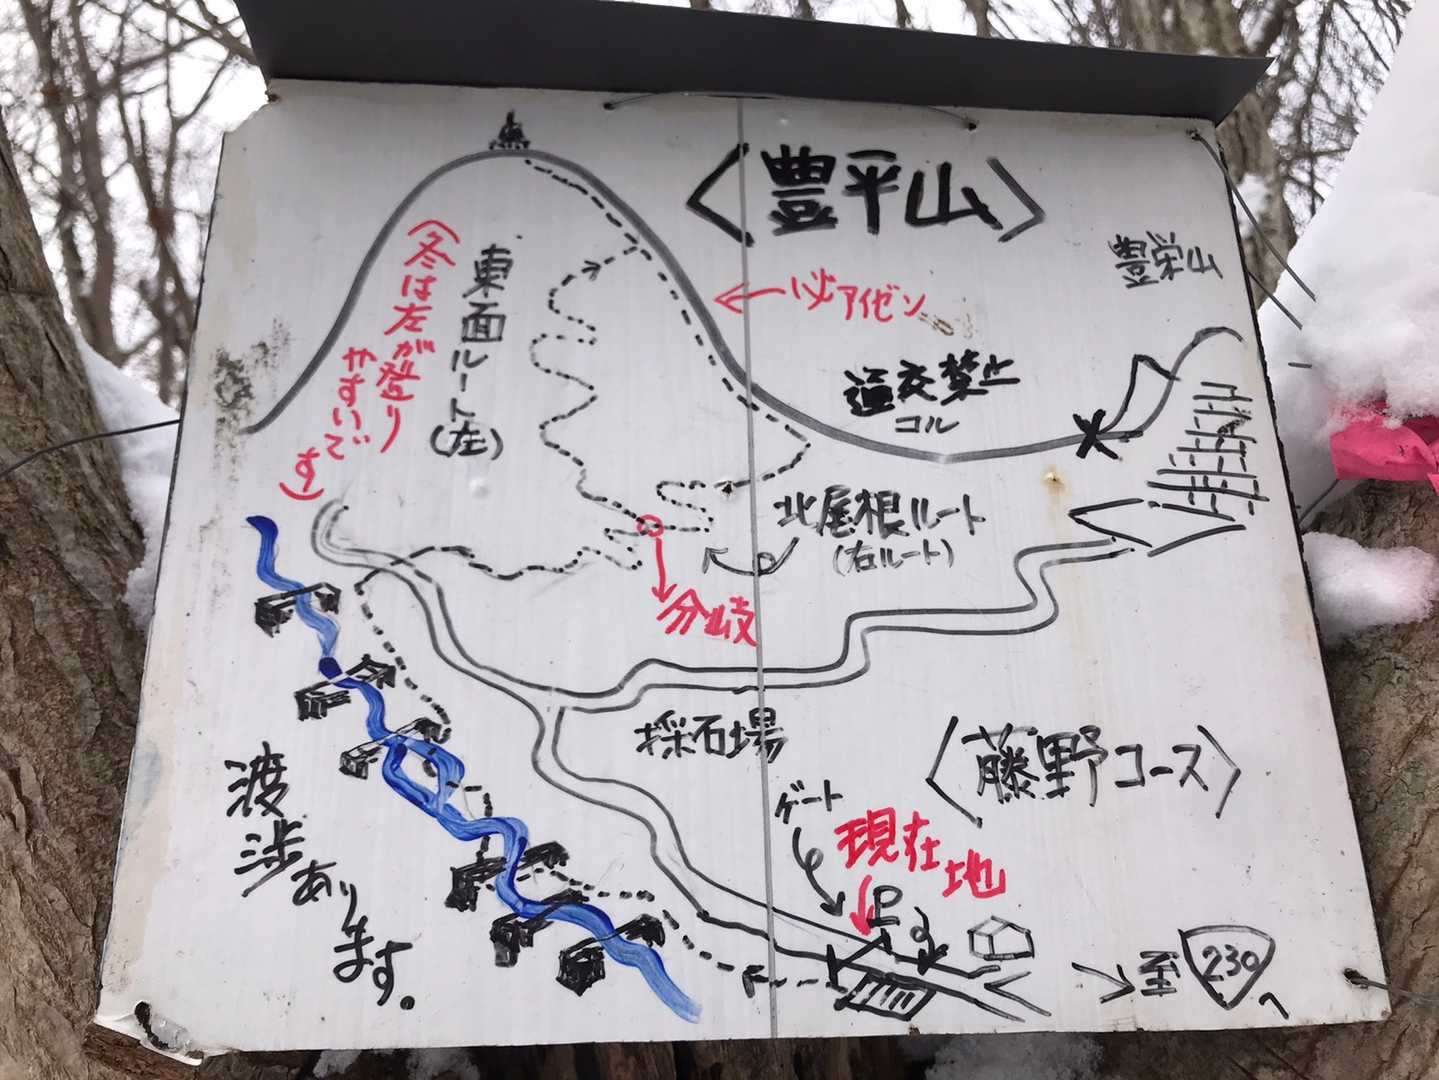 〈豊平山〉
豊栄山
(冬は左が登り
やすいで
す)
東面ルート
(左)
必アイゼン
通交禁止
コル
北尾根ルート
(右ルート)
分岐
採石場
〈藤野コース〉
渡渉あります。
ゲート
現在地
P
至230へ